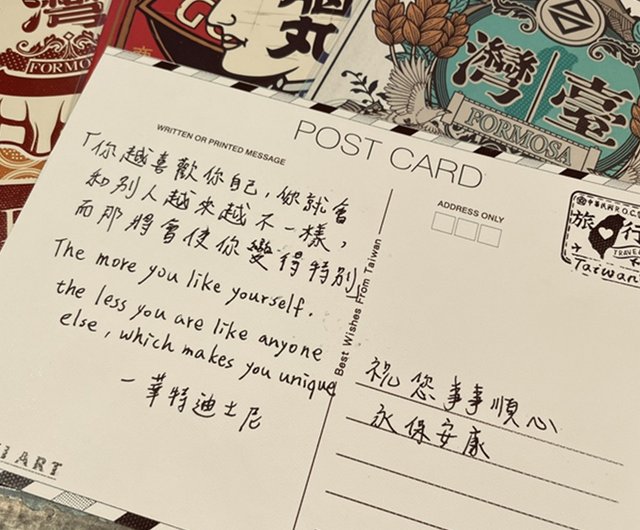 灣
FORMOSA
丸
灣
臺
FORMOSA
POST CARD
WRITTEN OR PRINTED MESSAGE
ADDRESS ONLY
「你越喜歡你自己，你就會
和別人越來越不一樣，
而那將會使你變得特別」
The more you like yourself.
the less you are like anyone
else, which makes you unique
一華特迪士尼
Best Wishes From Taiwan
中華民國 R.O.C
旅行
TRAVEL
Taiwan
祝您事事順心
永保安康
ART